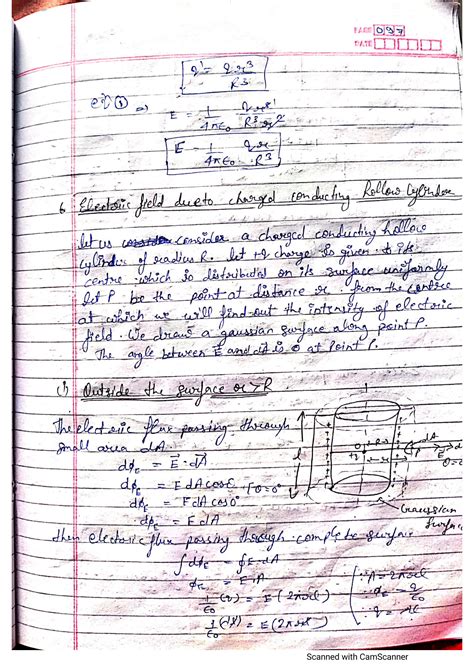 PAGE 097
DATE
q' = q r³ / R³
eqⁿ ① ⇒ E = 1/4πε₀ q r³ / R³ r²
E = 1/4πε₀ q r / R³
6 Electric field due to charged conducting Hollow Cylinder
let us consider a charged conducting hollow
cylinder of radius R. let +q charge is given to its
centre which is distributed on its surface uniformly
let P be the point at distance r from the centre
at which we will find out the intensity of electric
field. We draw a gaussian surface along point P.
The angle between E and dA is 0 at Point P.
(i) Outside the surface r > R
The electric flux passing through
small area dA.
dφE = E⃗ · dA⃗
dφE = E dA cosθ [θ=0°
dφE = E dA cos0°
dφE = E dA
Gaussian
Surface
then electric flux passing through complete surface
∫dφE = ∮E·dA
φE = E·A
∴ A = 2πrl
1/ε₀ (q) = E (2πrl)
∴ φE = q/ε₀
1/ε₀ (λl) = E (2πrl)
∴ q = λl
Scanned with CamScanner